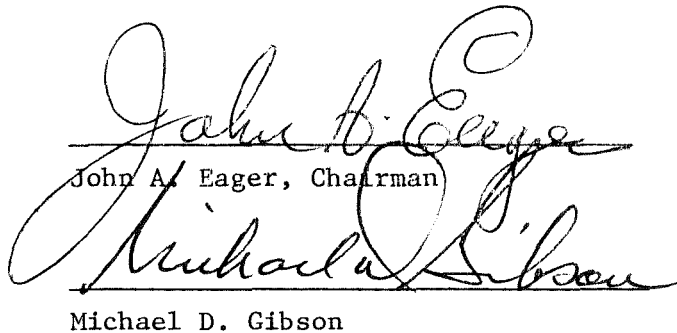 John A. Eager
John A. Eager, Chairman
Michael D Gibson
Michael D. Gibson